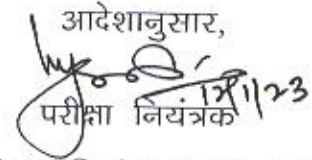 आदेशानुसार,
12/1/23
परीक्षा नियंत्रक